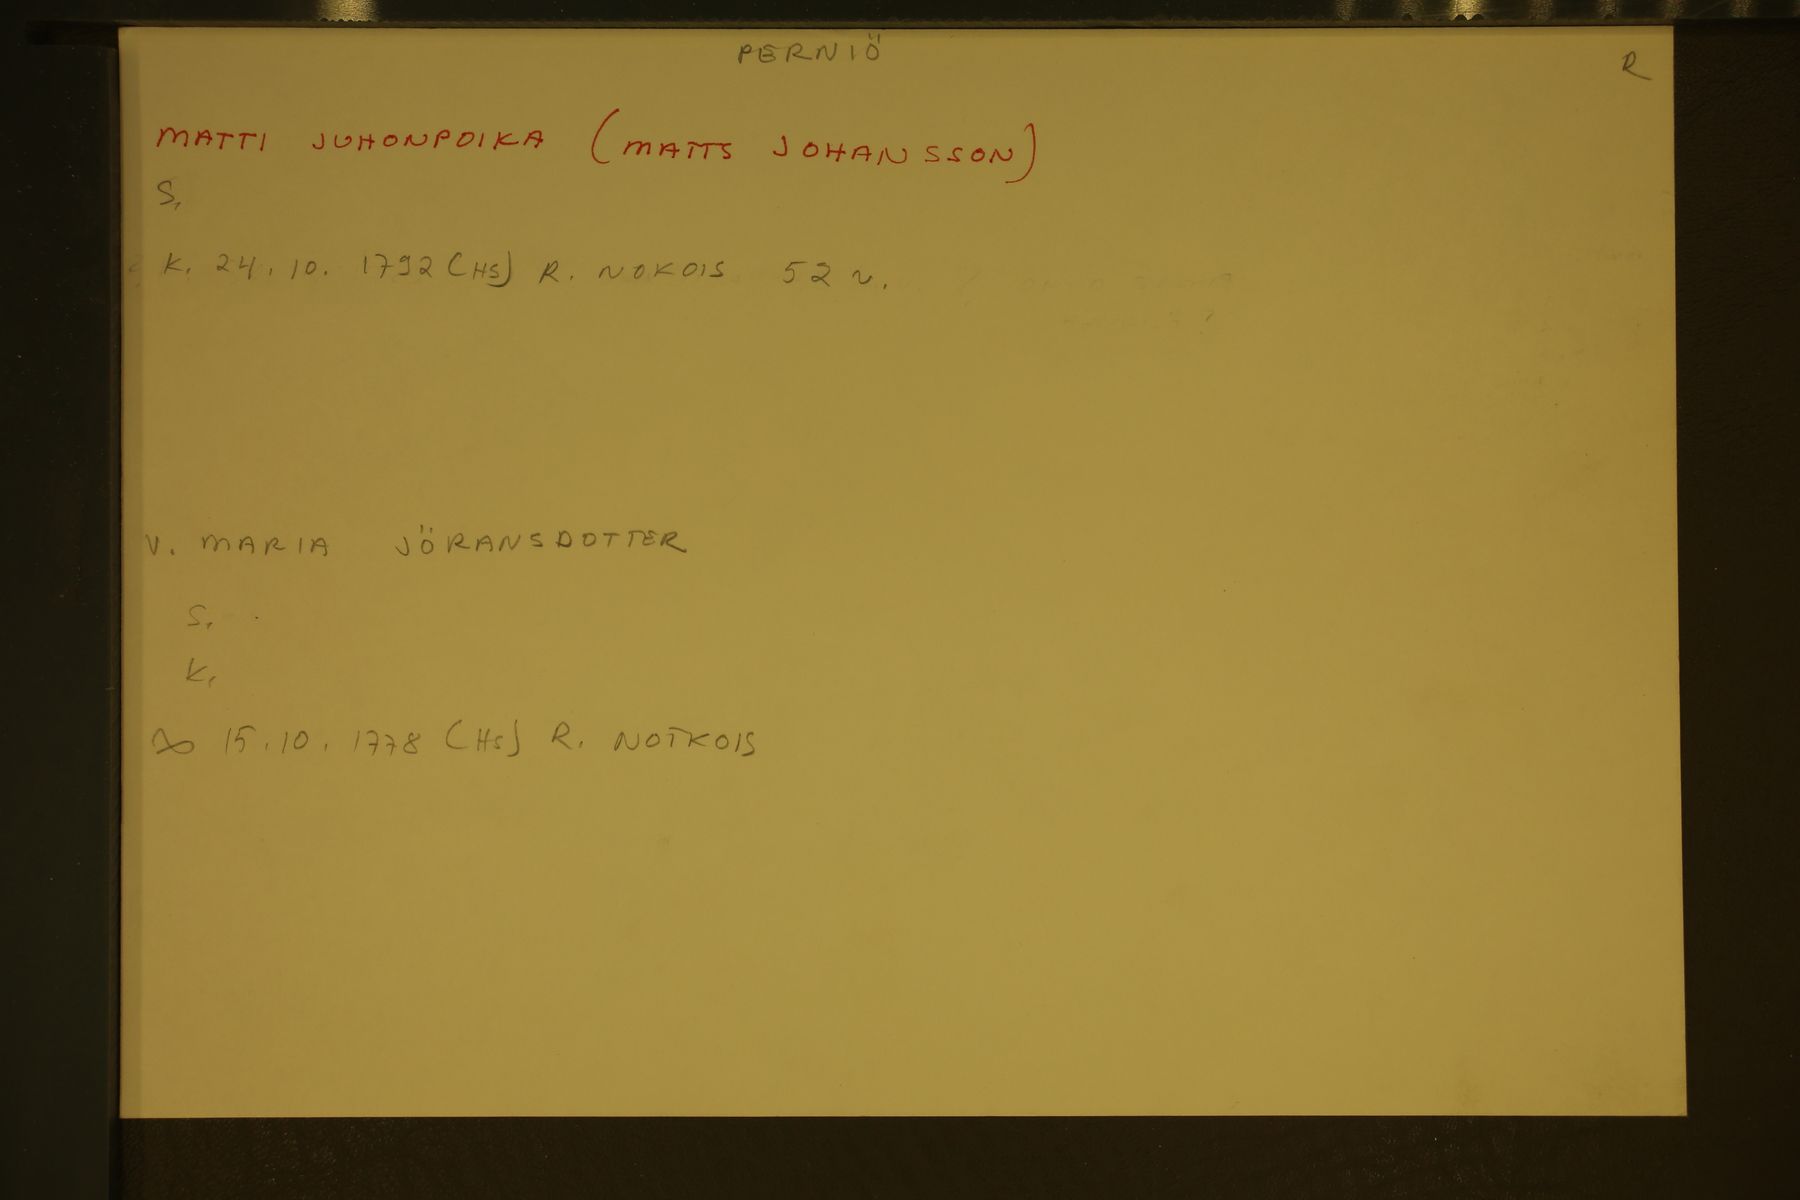 PERNIÖ
R
MATTI JUHONPOIKA (MATTS JOHANSSON)
S.
K. 24.10. 1792 (HS) R. NOKOIS 52 v.
V. MARIA JÖRANSDOTTER
S.
K.
∞ 15.10. 1778 (HS) R. NOTKOIS